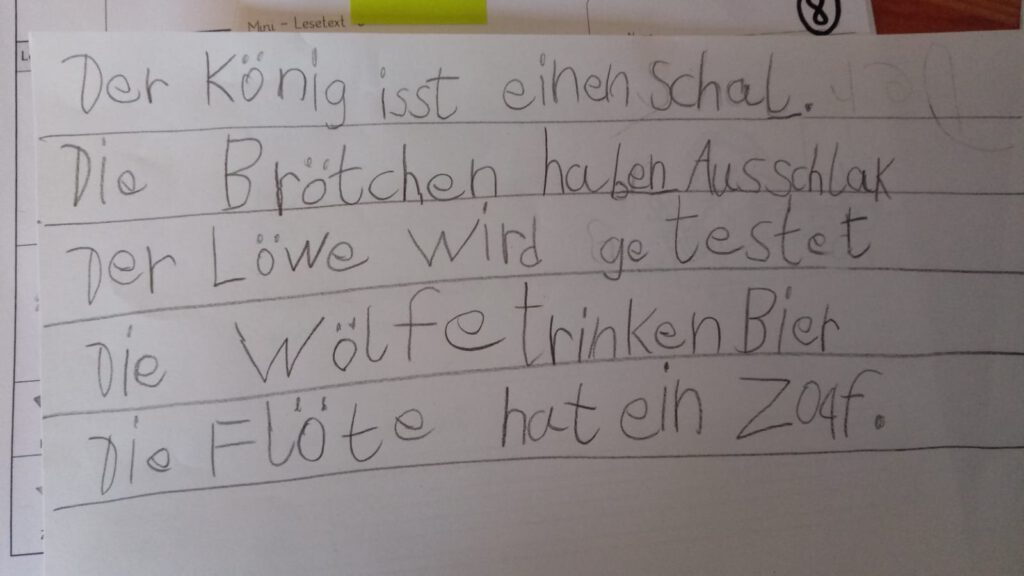 Mini - Lesetext
8
Der König isst einen Schal.
Die Brötchen haben Ausschlak
Der Löwe wird getestet
Die Wölfe trinken Bier
Die Flöte hat ein Zoqf.